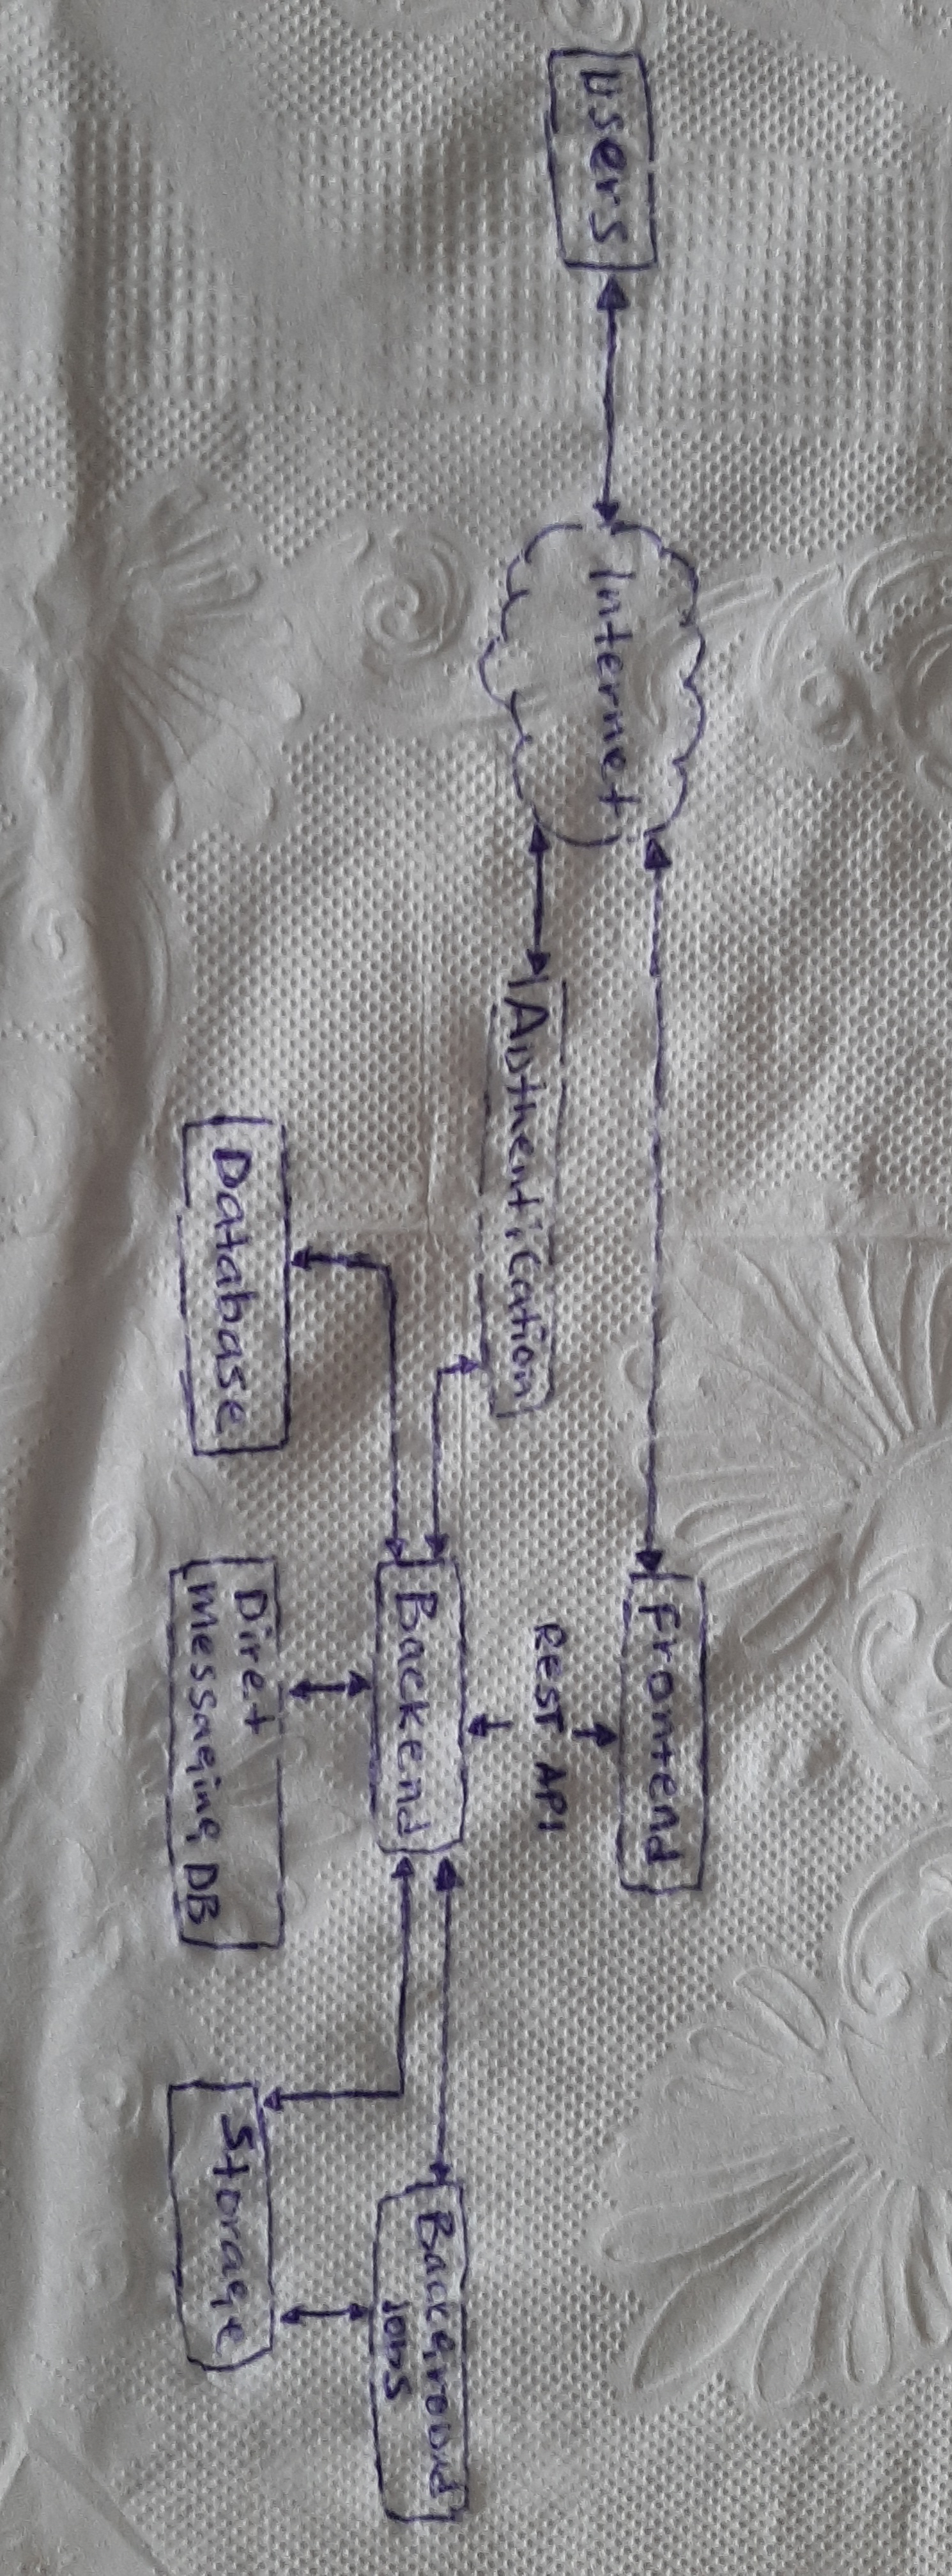 Frontend
Users
Internet
REST API
Authentication
Backend
Background
Jobs
Database
Diret
Messaging DB
Storage